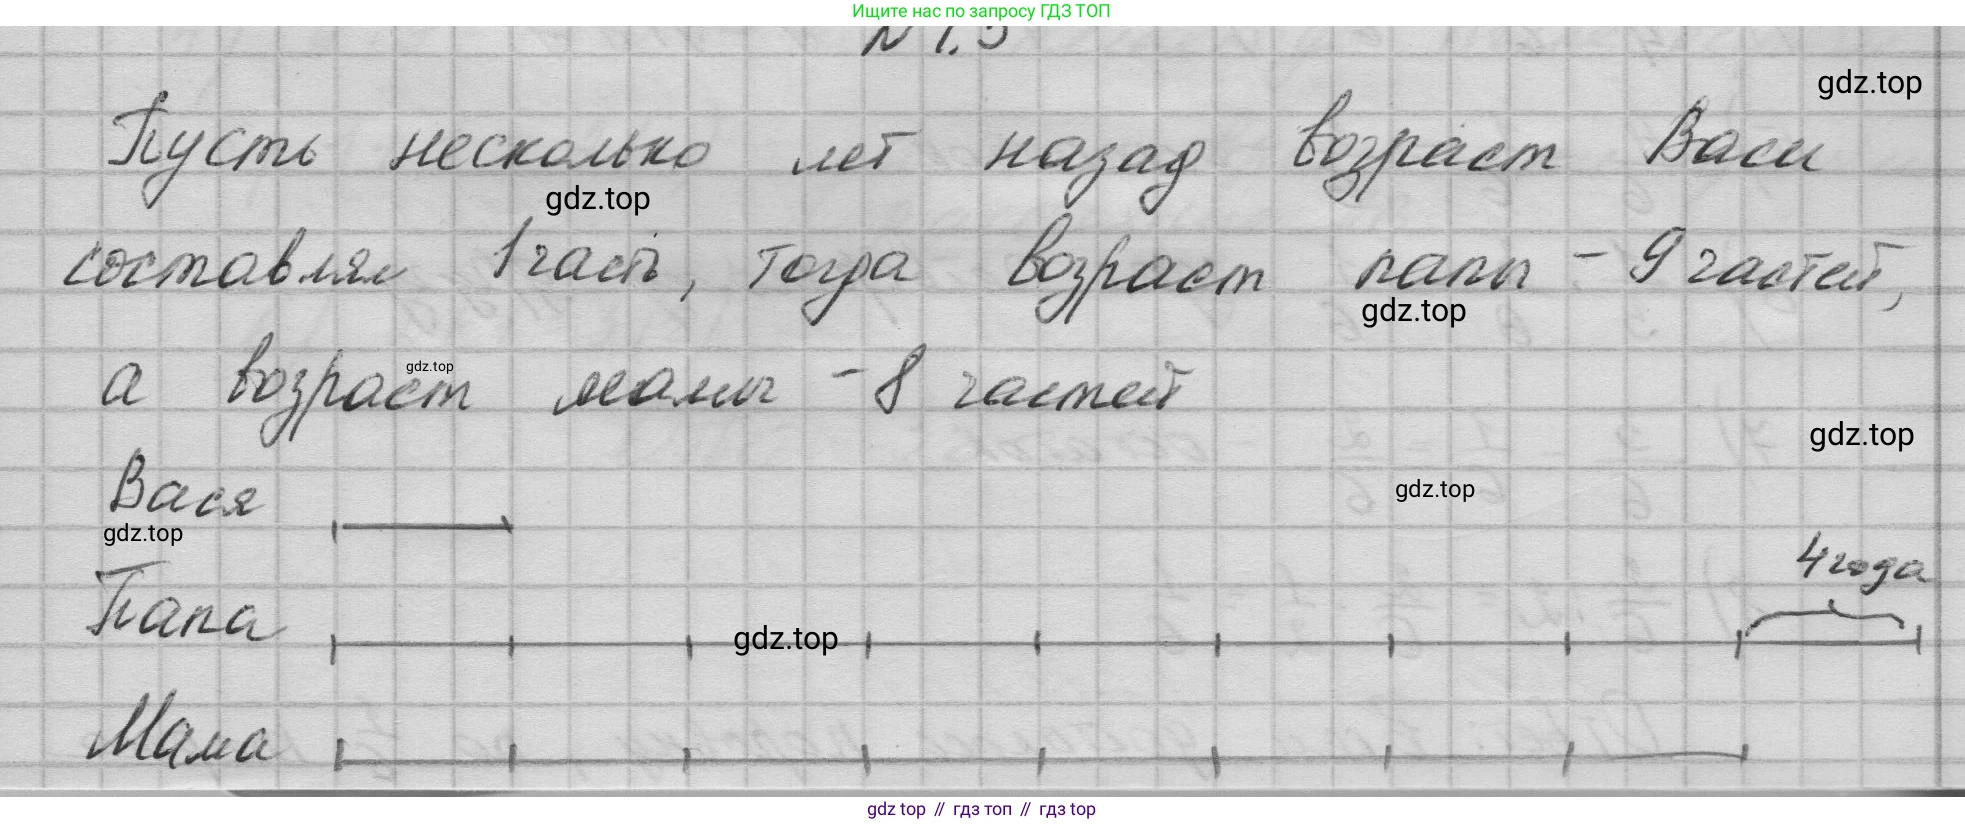 Ищите нас по запросу ГДЗ ТОП
N 1.5
gdz.top
Пусть несколько лет назад возраст Васи
gdz.top
составлял 1 часть, тогда возраст папы - 9 частей,
gdz.top
а возраст мамы - 8 частей
gdz.top
gdz.top
Вася
gdz.top
gdz.top
4 года
Папа
gdz.top
Мама
gdz.top // гдз топ // гдз top